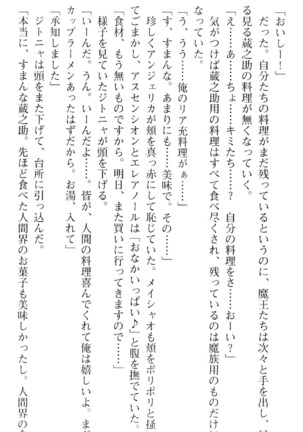 「おいしー！」
だった。自分たちの料理がまだ残っているというのに、魔王たちは次々と手を出し、
る見る蔵之助の料理が無くなっていく。
「え……あ……ちょ……キミたち……？　自分の料理をさ……おーい？」
気がつけば蔵之助用の料理はすべて食べ尽くされ、残っているのは魔族用のものだけに
なっていた。
「う、うう……俺のリア充料理がぁ……」
「す、すまんな。あまりにも……美味で。その……」
珍しくアンジェリカが頬を真っ赤にして恥じていた。メイシャオも頬をポリポリと掻
てごまかし、アスセンシオンとエレアノールは「おなかいっぱい♪」と腹を撫でていた。
「食材、もう無いものですから。明日、また買いに行ってきますので……」
様子を見ていたジトニャが頭を下げる。
「いーんだ。うん、いーんだよ……。皆が、人間の料理喜んでくれて俺は嬉しいよ。ま
カップラーメンあったはずだから。お湯、入れて」
「承知しました」
ジトニャは頭をまた下げて、台所に引っ込んだ。
「本当に、すまんな蔵之助。先ほど食べた人間界のお菓子も美味しかったし。人間界の